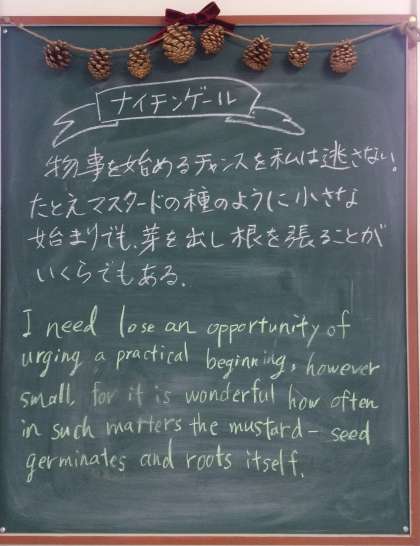 ナイチンゲール
物事を始めるチャンスを私は逃さない。
たとえマスタードの種のように小さな
始まりでも、芽を出し根を張ることが
いくらでもある。
I need lose an opportunity of
urging a practical beginning, however
small, for it is wonderful how often
in such marters the mustard-seed
germinates and roots itself.